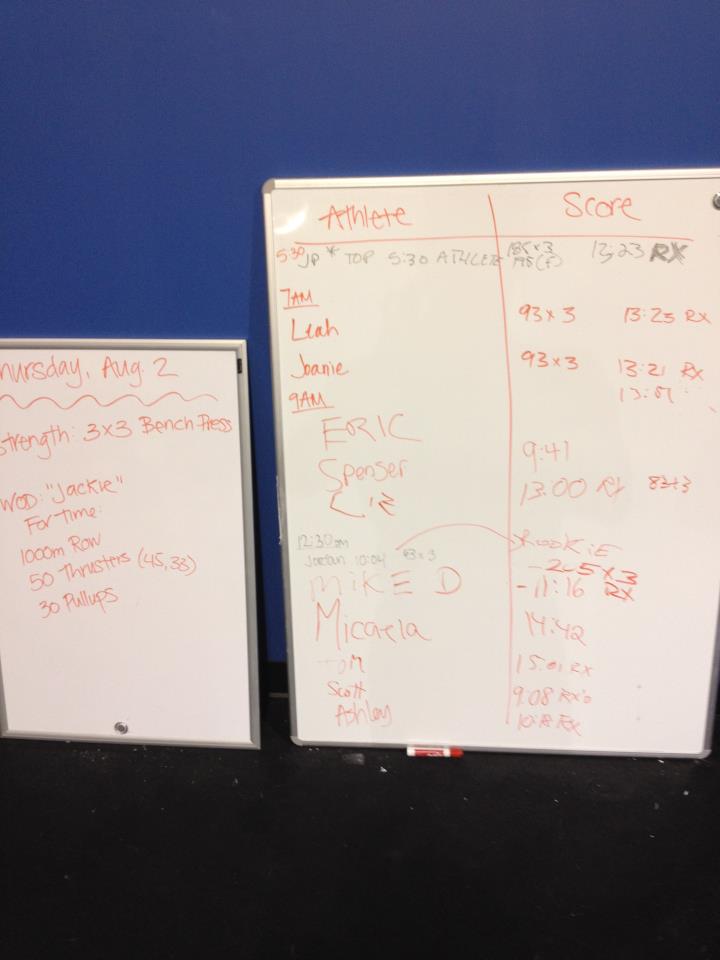 hursday, Aug. 2
trength: 3x3 Bench Press
WOD: "Jackie"
For Time:
1000m Row
50 Thrusters (45,33)
30 Pullups
Athlete Score
5:30 JP * TOP 5:30 ATHLETE 185x3 13:23 RX
195(f)
7AM
Leah 93x3 13:23 RX
Joanie 93x3 13:21 RX
9AM
ERIC 9:41
Spenser 13:00 RX 83x3
Liz
12:30pm ROOKIE
Jordan 10:04 93x3
MIKE D - 205x3
- 11:16 RX
Micaela 14:42
TOM 15:01 RX
Scott 9:08 RX
Ashley RX